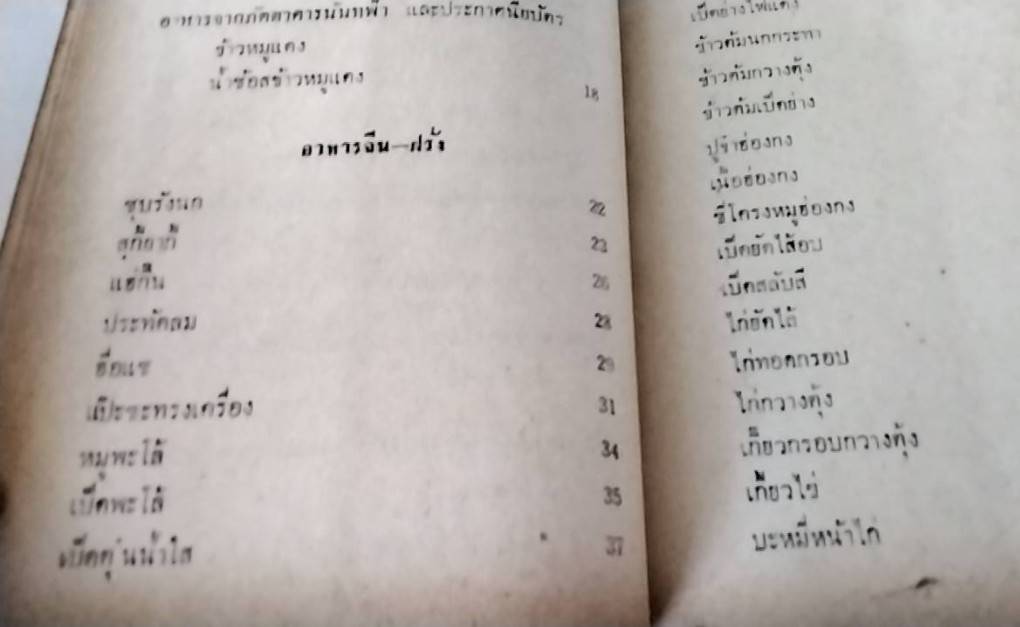 อาหารจากภัตตาคารนันทฟ้า และประกาศนียบัตร
ข้าวหมูแดง
น้ำซ้อสข้าวหมูแดง 18
อาหารจีน—ฝรั่ง
ซุบรังนก 22
สุกี้ยากี้ 23
แฮ่กึ๊น 26
ประทัดลม 28
ฮื่อแซ 29
แป๊ะซะทรงเครื่อง 31
หมูพะโล้ 34
เป็ดพะโล้ 35
เป็ดตุ๋นน้ำใส 37
เป็ดย่างไฟแดง
ข้าวต้มนกกระทา
ข้าวต้มกวางตุ้ง
ข้าวต้มเป็ดย่าง
ปูจ๋าฮ่องกง
เนื้อฮ่องกง
ซี่โครงหมูฮ่องกง
เป็ดยัดไส้อบ
เป็ดสลับสี
ไก่ยัดไส้
ไก่ทอดกรอบ
ไก่กวางตุ้ง
เกี๊ยวกรอบกวางตุ้ง
เกี๊ยวไข่
บะหมี่หน้าไก่